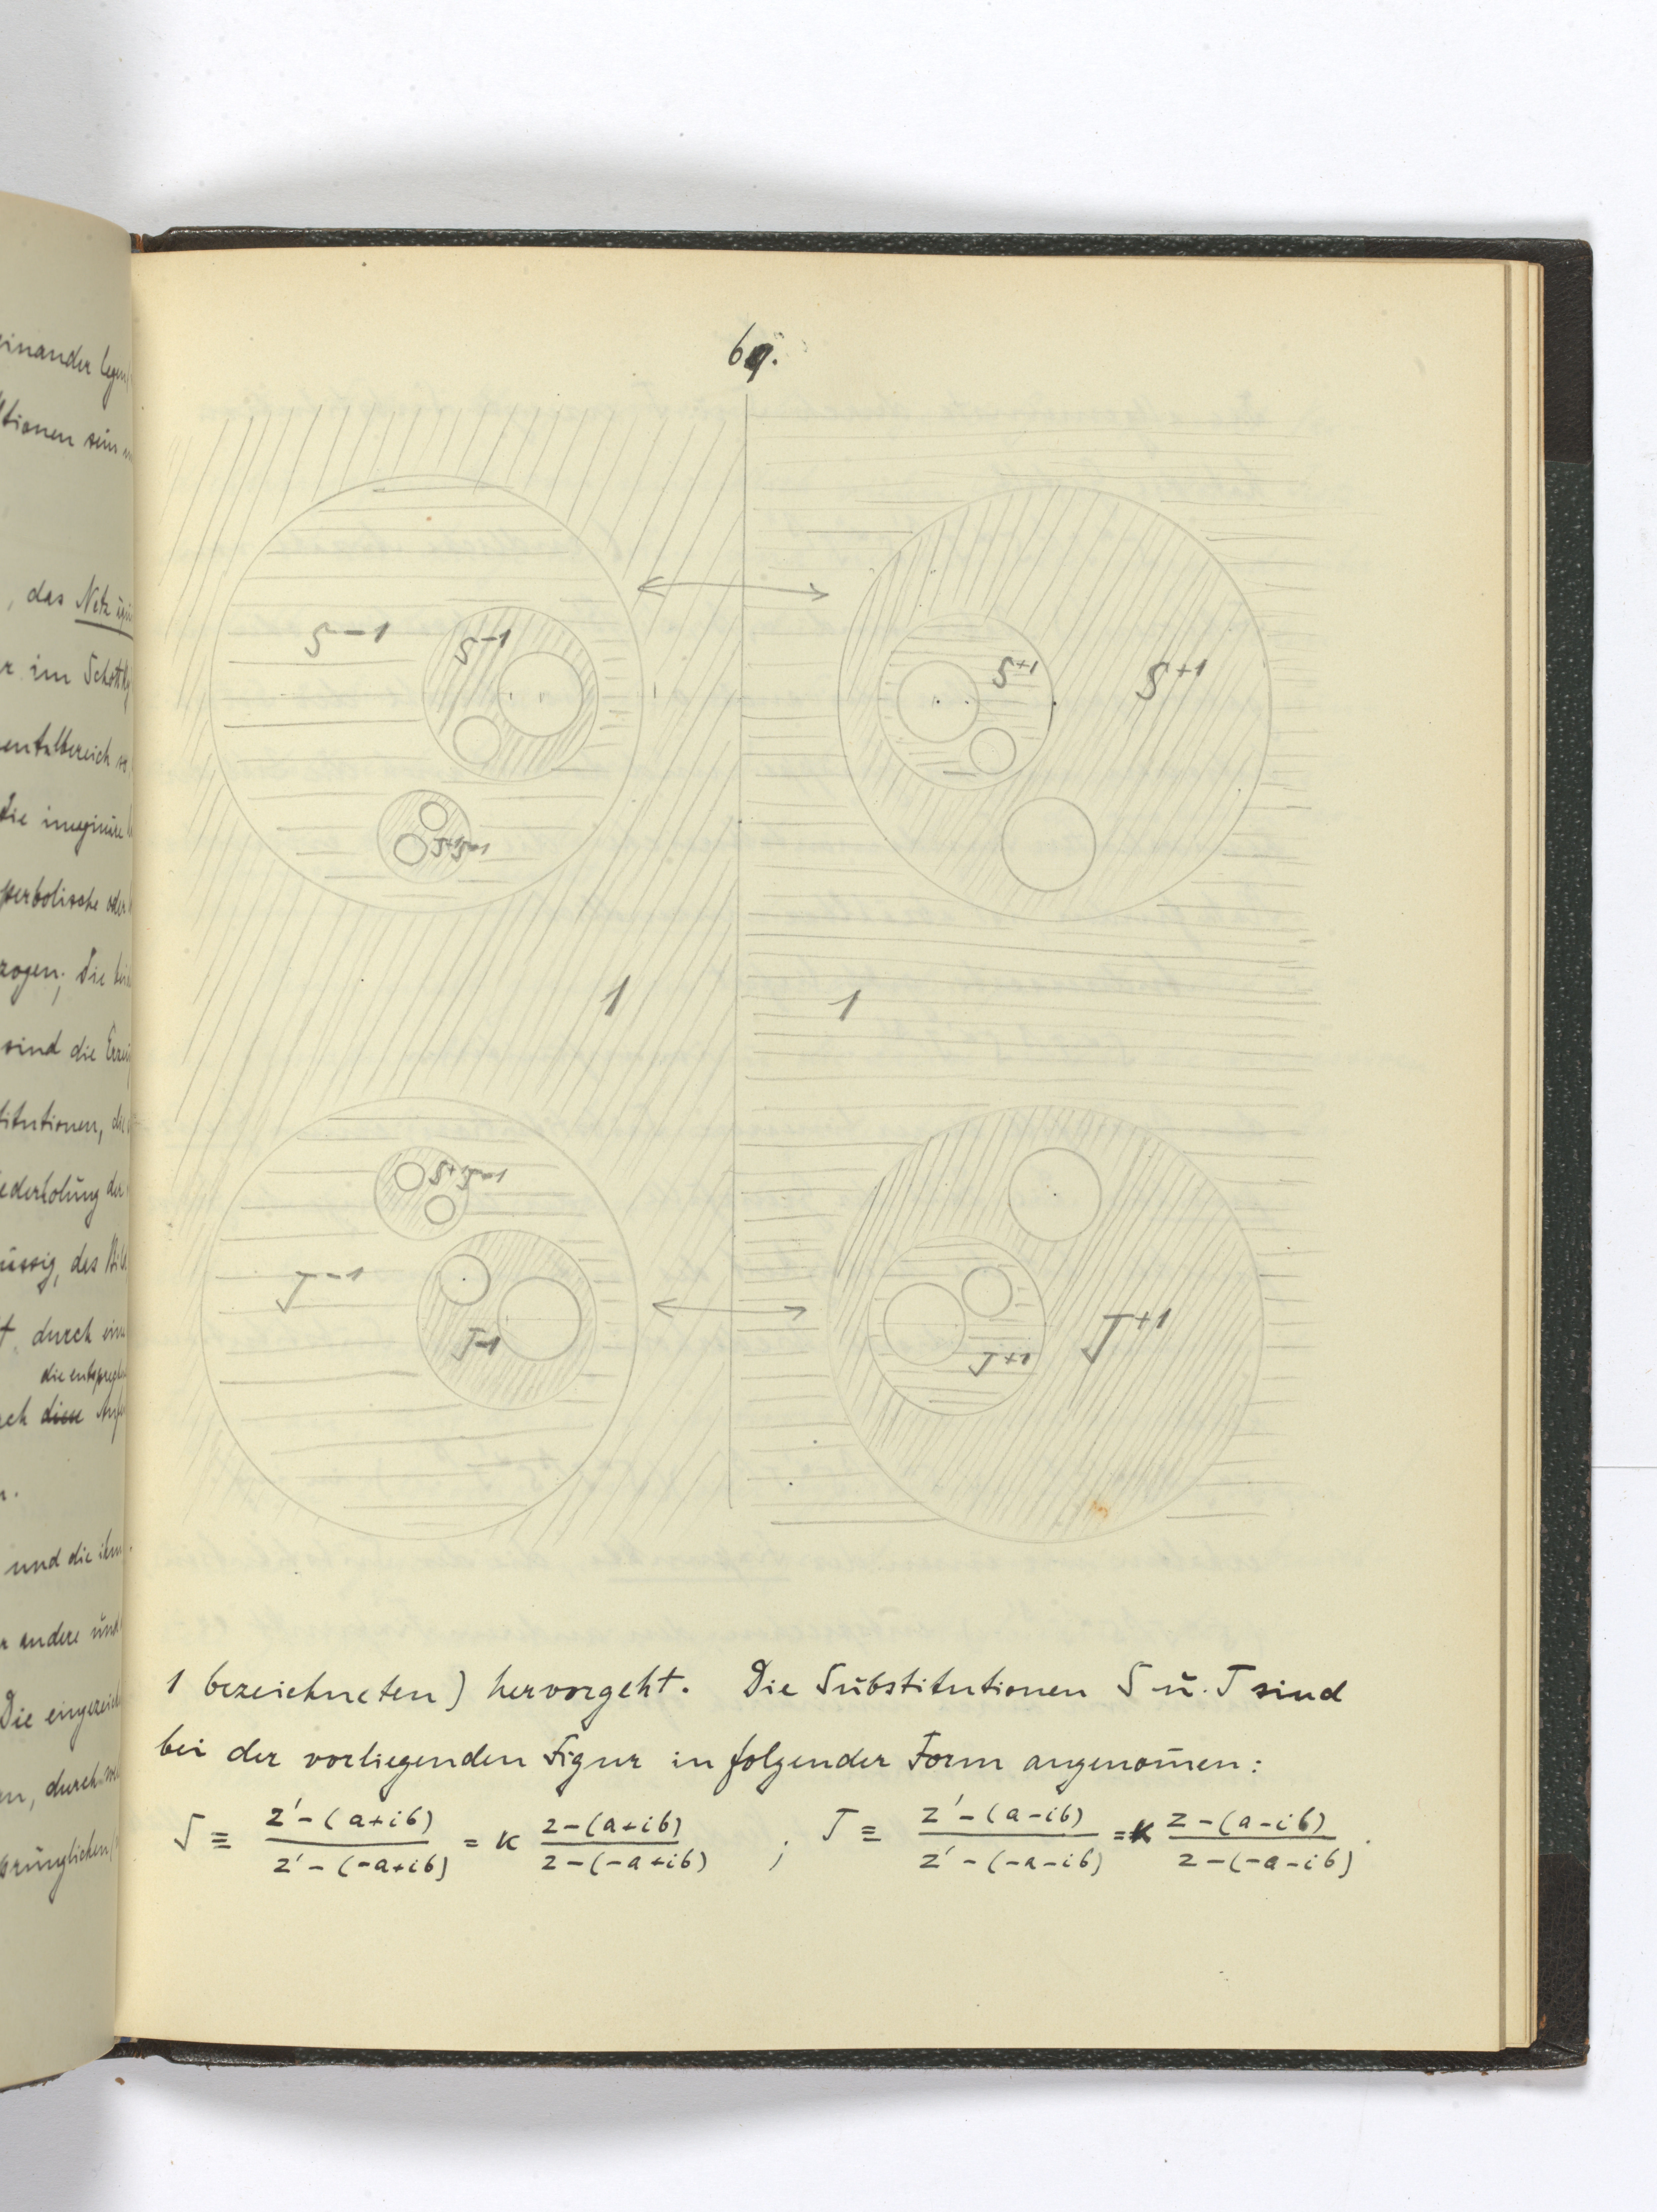 einander legen
tionen sein
, das Netz
r im Schottky
entalbereich
die imaginäre
perbolische oder
zogen; die
sind die
titutionen, die
ederholung der
üssig, des
t. durch eine
ch diese
und die ihm
r andere und
Die eingezeich
en, durch
sprünglichen
69.
S−1 S−1 S+1 S+1
1 1
S+1J−1
J−1 J−1 J+1 J+1
1 bezeichneten) hervorgeht. Die Substitutionen S u. T sind
bei der vorliegenden Figur in folgender Form angenom̄en:
S ≡ z' − (a+ib) / z' − (−a+ib) = K z−(a+ib) / z−(−a+ib) ; T ≡ z' − (a−ib) / z' − (−a−ib) = K z−(a−ib) / z−(−a−ib) .